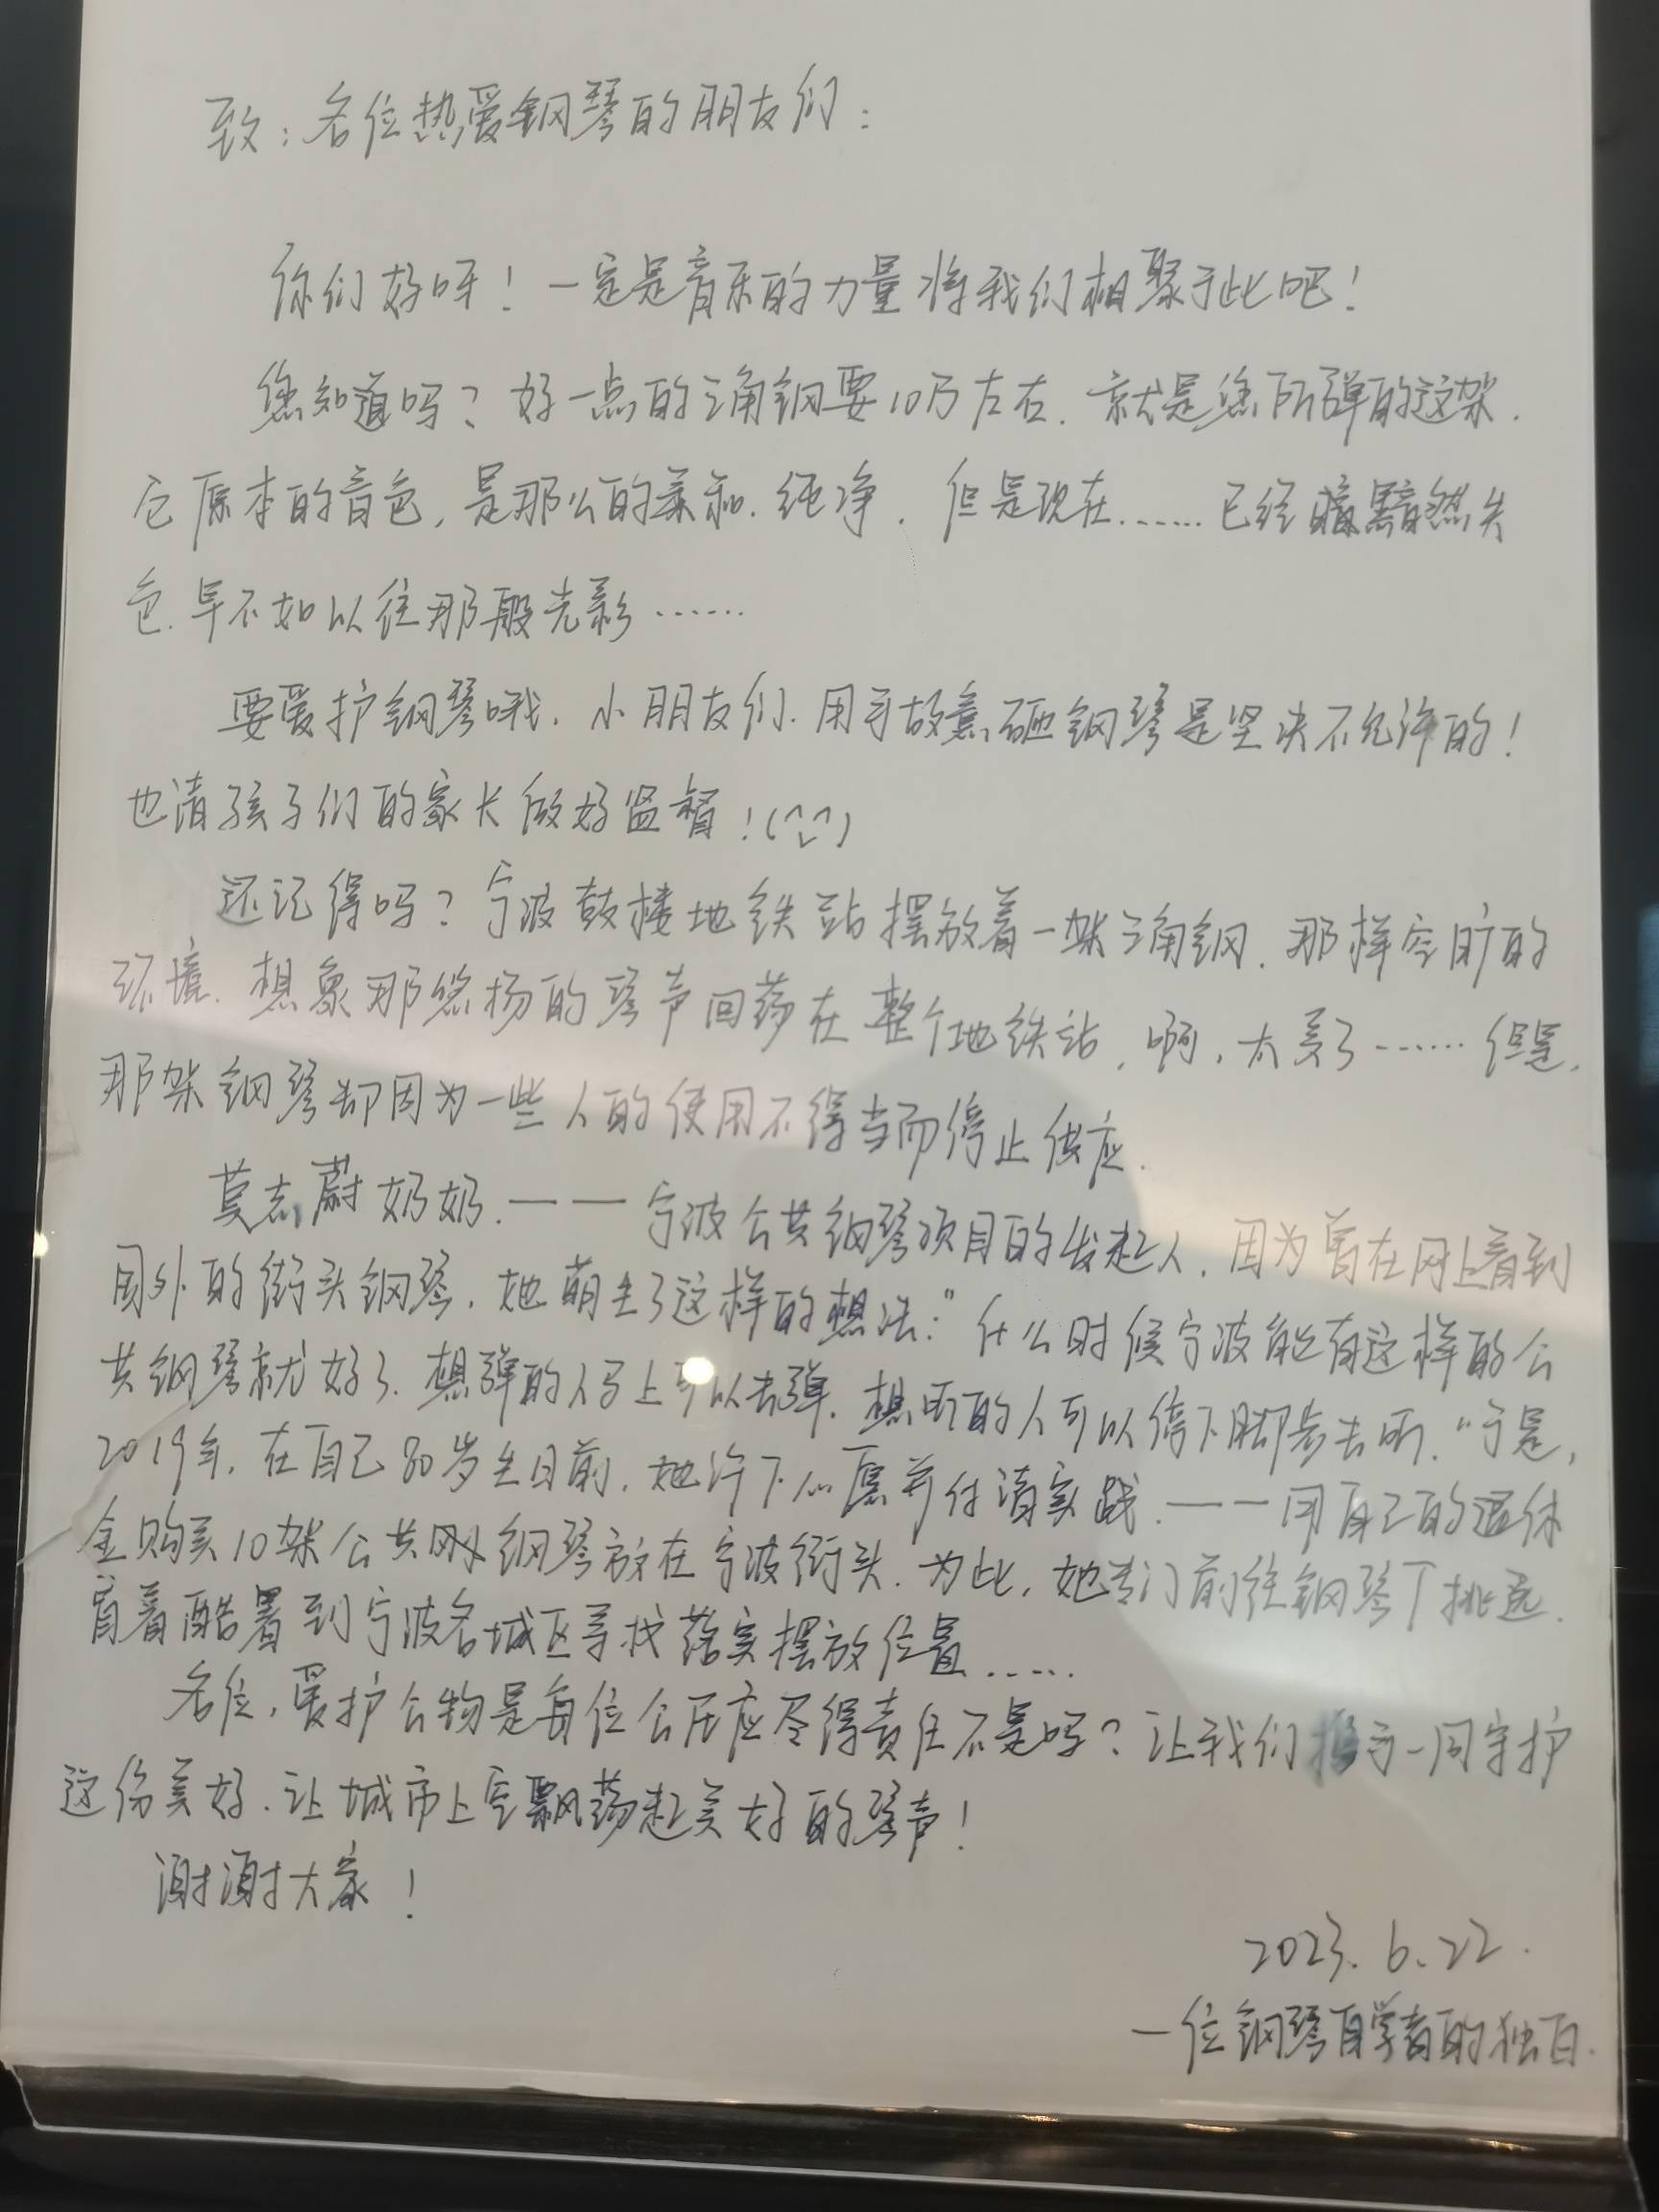 致：各位热爱钢琴的朋友们：
你们好呀！一定是音乐的力量将我们相聚于此吧！
您知道吗？好一点的三角钢要10万左右，就是您所弹的这架，
它原本的音色，是那么的柔和，纯净，但是现在……已经黯然失
色，早不如以往那般光彩……
要爱护钢琴哦，小朋友们，用手故意砸钢琴是坚决不允许的！
也请孩子们的家长做好监督！(^_^)
还记得吗？宁波鼓楼地铁站摆放着一架三角钢，那样空旷的
环境，想象那悠扬的琴声回荡在整个地铁站，啊，太美了……但是，
那架钢琴却因为一些人的使用不得当而停止供应．
莫志蔚奶奶，——宁波公共钢琴项目的发起人，因为曾在网上看到
国外的街头钢琴，她萌生了这样的想法：“什么时候宁波能有这样的公
共钢琴就好了，想弹的人马上可以去弹，想听的人可以停下脚步去听．”于是，
2019年，在自己80岁生日前，她许下心愿并付清实践，——用自己的退休
金购买10架公共钢琴放在宁波街头，为此，她专门前往钢琴厂挑选，
冒着酷暑到宁波各城区寻找落实摆放位置……
各位，爱护公物是每位公民应尽得责任不是吗？让我们携手一同守护
这份美好，让城市上空飘荡起美好的琴声！
谢谢大家！
2023.6.22.
一位钢琴自学者的独白．